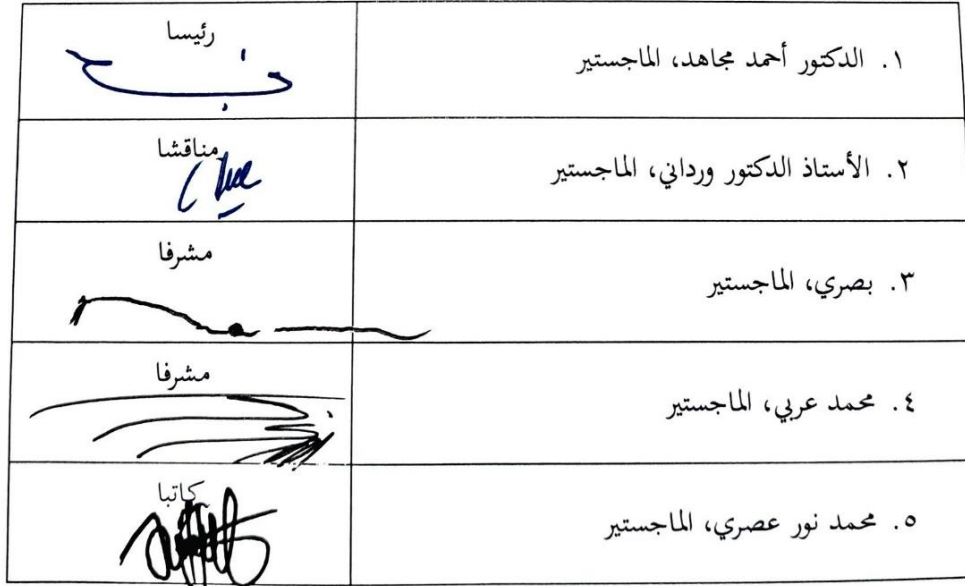 ١. الدكتور أحمد مجاهد، الماجستير
رئيسا
٢. الأستاذ الدكتور ورداني، الماجستير
مناقشا
٣. بصري، الماجستير
مشرفا
٤. محمد عربي، الماجستير
مشرفا
٥. محمد نور عصري، الماجستير
كاتبا